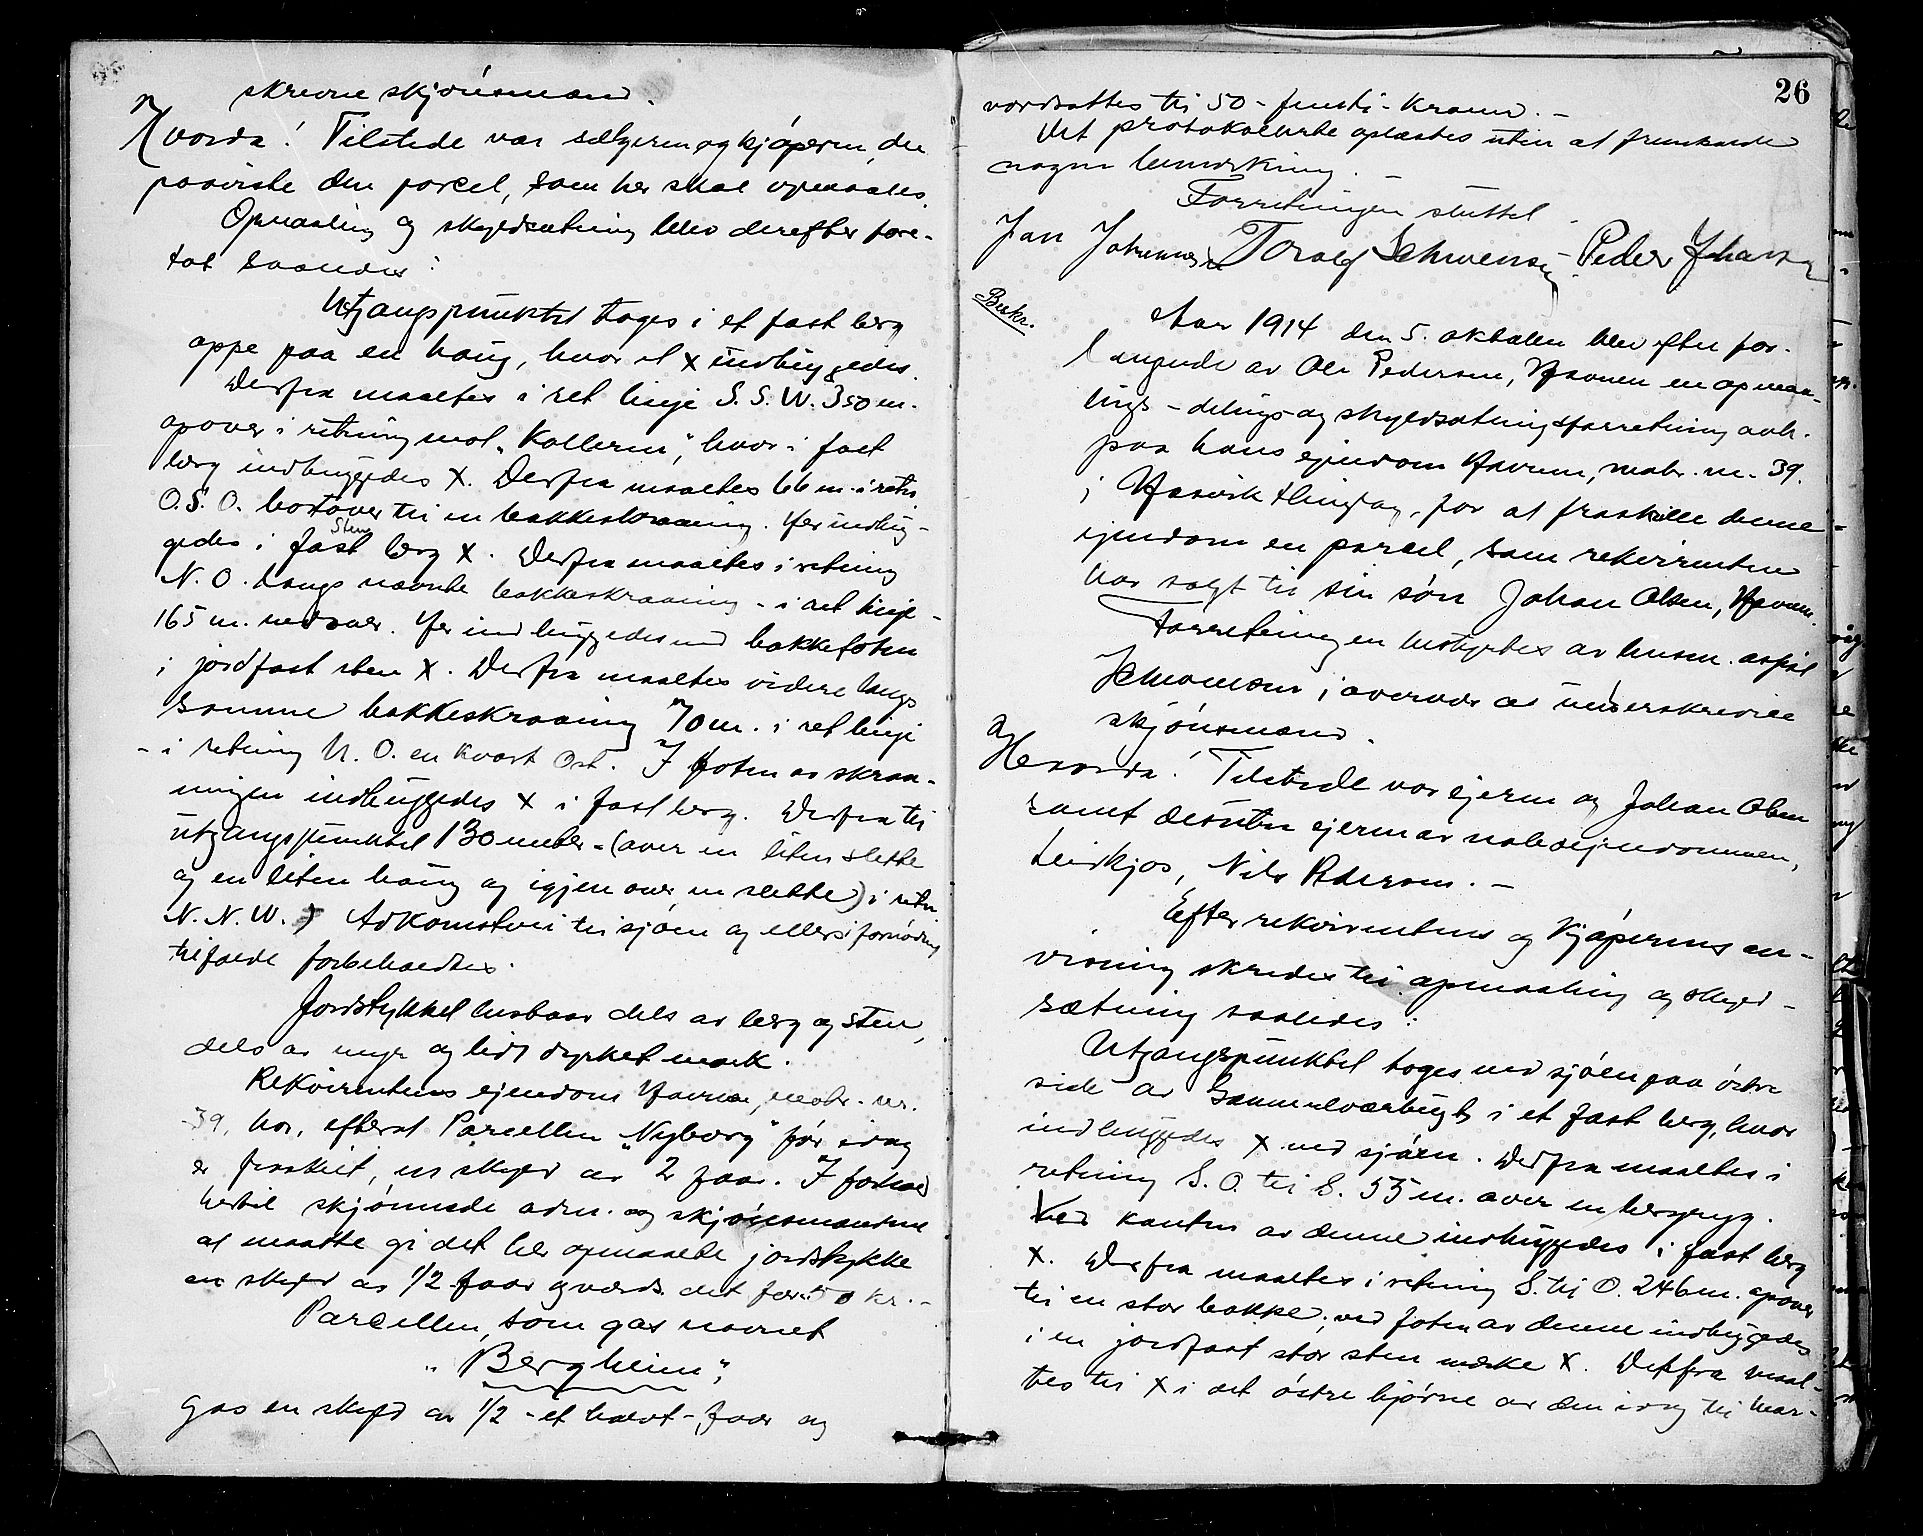 skrevne skjønsmænd.
Hvorda! Tilstede var sælgeren og kjøperen, der
paaviste den parcel, som her skal opmaales.
Opmaaling og skyldsætning blev derefter fore-
tat saaledes:
Utgangspunktet toges i et fast berg
oppe paa en haug, hvor et x indhuggedes.
Derfra maaltes i ret linje S.S.W. 350 m.
opover i retning mot "Kolleren", hvor i fast
berg indhuggedes X. Derfra maaltes 66 m. i retn.
O.S.O. bortover til en bakkeskraaning. Her indhug-
gedes i fast berg X. Derfra maaltes i retning
N.O. langs nævnte bakkeskraaning - i ret linje -
165 m. nedover. Her indhuggedes ved bakkefoten
i jordfast sten X. Derfra maaltes videre langs
samme bakkeskraaning 70 m. i ret linje
- i retning N.O. en kvart Ost. I foten av skraa-
ningen indhuggedes X i fast berg. Derfra til
utgangspunktet 130 meter - (over en liten slette
og en liten haug og igjen over en slette) i retn.
N.N.W. Adkomstvei til sjøen og ellers i fornødne
tilfælde forbeholdtes.
Jordstykket bestaar dels av berg og sten,
dels av myr og lidt dyrket mark.
Rekvirentens ejendom Havnen, matr. nr.
39, har, efterat Parcellen "Nyborg" før idag
er fraskilt, en skyld av 2 faar. I forhold
hertil skjønnede adm. og skjønsmændene
at maatte gi det her opmaalte jordstykke
en skyld av 1/2 faar og værds. det for 50 kr. -
Parcellen, som gas navnet
"Bergheim",
gas en skyld av 1/2 - et halvt - faar og
26
værdsattes til 50 - femti - kroner. -
Det protokollerte oplæstes uten at fremkalde
nogen bemerkning. -
Forretningen sluttet.
Jan Johannesen Toralf Schwensen Peder Johansen
Beskr.
Aar 1914 den 5. oktober blev efter for-
langende av Ole Pedersen, Havnen en opmaa-
lings - delings- og skyldsætningsforretning avh.
paa hans ejendom Havnen, matr. nr. 39.
i Hasvik tinglag, for at fraskille denne
ejendom en parcel, som rekvirenten
har solgt til sin søn Johan Olsen, Havnen.
Forretningen bestyrtes av lensm. aspir.
Schwensen i overvær av underskrevne
skjønsmænd.
og
Hesvorda! Tilstede var ejeren og Johan Olsen
samt desuten ejeren av naboejendommen,
Leirkjos, Nils Pedersen. -
Efter rekvirentens og kjøperens an-
visning skredes til opmaaling og skyld-
sætning saaledes:
Utgangspunktet toges ved sjøen paa østre
side av Gammelværbugt i et fast berg, hvor
indhuggedes X ved sjøen. Derfra maaltes i
retning S.O. til S. 55 m. over en bergryg.
Ved kanten av denne indhuggedes i fast berg
X. Derfra maaltes i retning S. til O. 246 m. opover
til en stor bakke; ved foten av denne indhuggedes
i en jordfast stor sten merke X. Derfra maal-
tes til X i det østre hjørne av den idag til Mar-